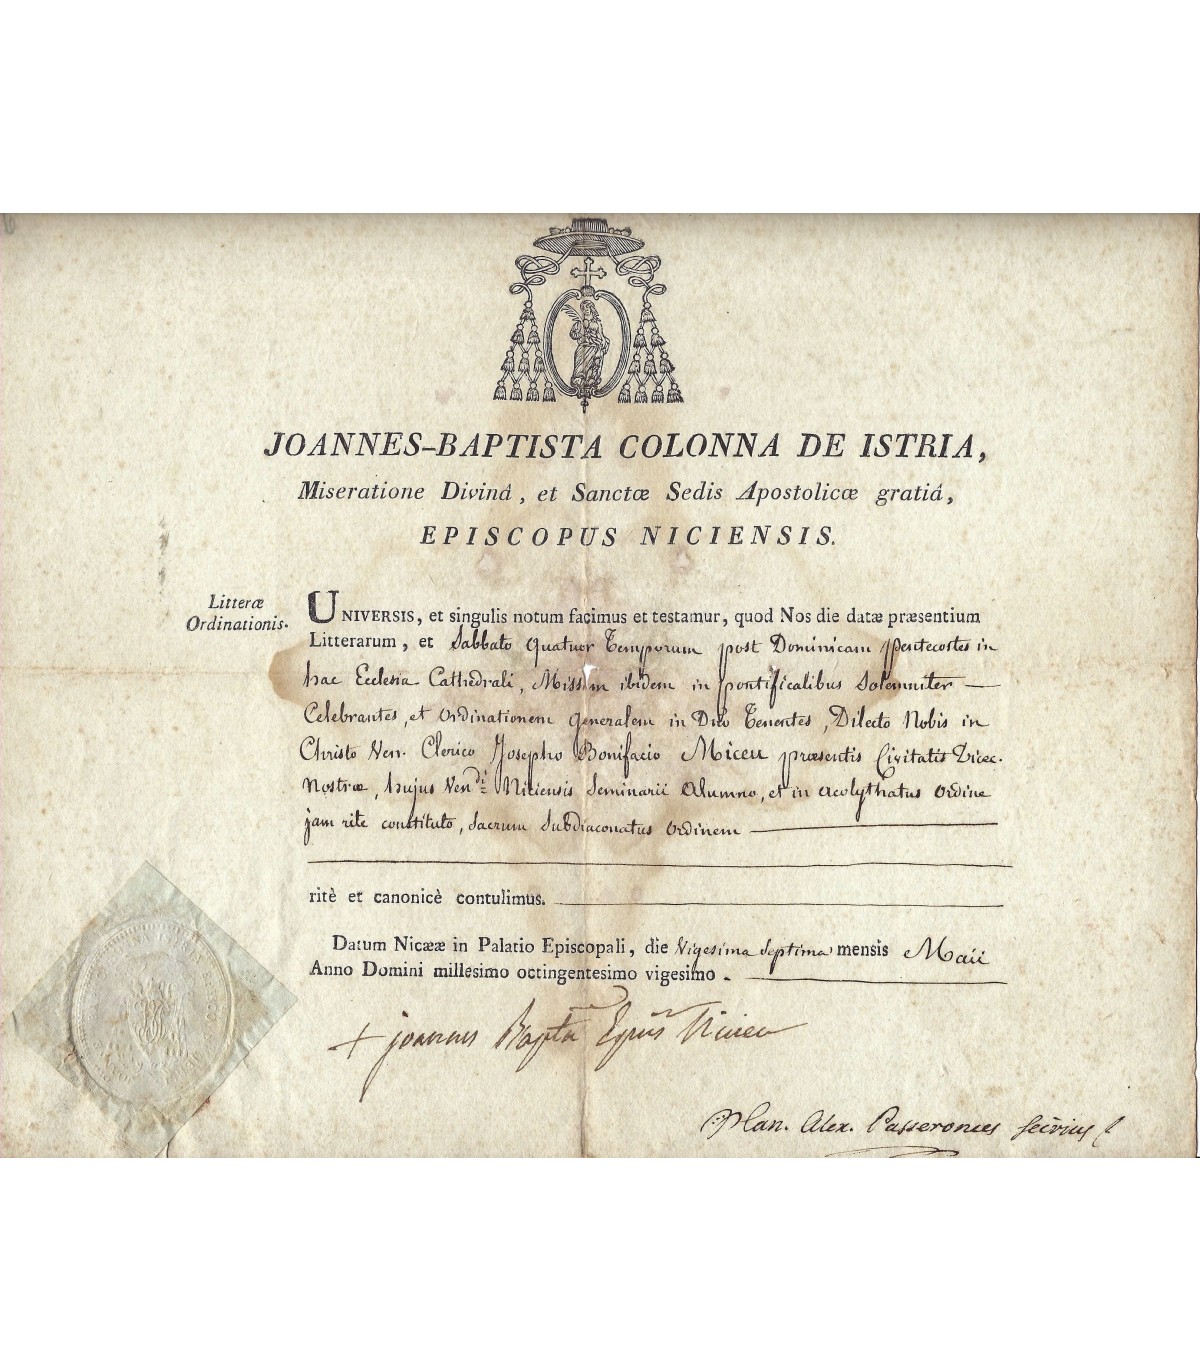 JOANNES-BAPTISTA COLONNA DE ISTRIA,
Miseratione Divinâ, et Sanctæ Sedis Apostolicæ gratiâ,
EPISCOPUS NICIENSIS.
Litteræ
Ordinationis.
UNIVERSIS, et singulis notum facimus et testamur, quod Nos die datæ præsentium
Litterarum, et Sabbato Quatuor Temporum post Dominicam Pentecostes in
hac Ecclesia Cathedrali, Missam ibidem in pontificalibus Solemniter —
Celebrantes, et Ordinationem Generalem in Dño Tenentes, Dilecto Nobis in
Christo Ven. Clerico Josepho Bonifacio Miceu præsentis Civitatis Diœc.
Nostræ, hujus Ven.di Niciensis Seminarii Alumno, et in Acolythatus Ordine
jam rite constituto, Sacrum Subdiaconatus Ordinem
ritè et canonicè contulimus.
Datum Nicææ in Palatio Episcopali, die Vigesima Septima mensis Maii
Anno Domini millesimo octingentesimo vigesimo.
+ joannes Bapta Epus Nicien
Plan. Alex. Passeronus Secrius